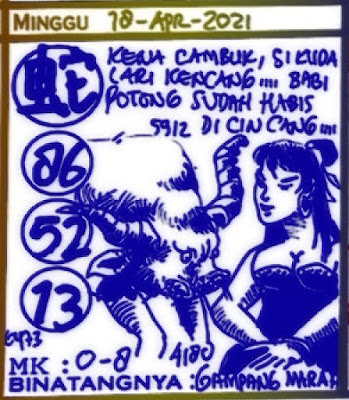 MINGGU 18-APR-2021
蛇
KENA CAMBUK, SI KUDA
LARI KENCANG.... BABI
POTONG SUDAH HABIS
5912 DI CINCANG....
86
52
13
6473
MK : 0-8 4180
BINATANGNYA : GAMPANG MARAH